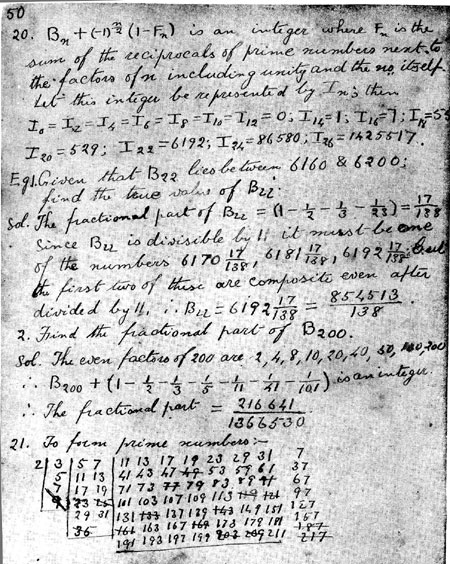 50
20. Bn + (-1)^(n/2) (1 - Fn) is an integer where Fn is the
sum of the reciprocals of prime numbers next to
the factors of n including unity and the no. itself.
Let this integer be represented by In; then
I0 = I2 = I4 = I6 = I8 = I10 = I12 = 0; I14 = 1; I16 = 7; I18 = 55
I20 = 529; I22 = 6192; I24 = 86580; I26 = 1425517.
Eg1. Given that B22 lies between 6160 & 6200;
find the true value of B22.
Sol. The fractional part of B22 = (1 - 1/2 - 1/3 - 1/23) = 17/138
Since B22 is divisible by 11 it must be one
of the numbers 6170 17/138, 6181 17/138, 6192 17/138; but
the first two of these are composite even after
divided by 11, ∴ B22 = 6192 17/138 = 854513/138.
2. Find the fractional part of B200.
Sol. The even factors of 200 are 2, 4, 8, 10, 20, 40, 50, 100, 200
∴ B200 + (1 - 1/2 - 1/3 - 1/5 - 1/11 - 1/41 - 1/101) is an integer.
∴ The fractional part = 216641/1366530.
21. To form prime numbers:—
2 3 5 7 11 13 17 19 23 29 31 7
5 11 13 41 43 47 49 53 59 61 37
7 17 19 71 73 77 79 83 89 91 67
23 25 101 103 107 109 113 119 121 97
29 31 131 133 137 139 143 149 151 127
36 161 163 167 169 173 179 181 157
191 193 197 199 203 209 211 187
217